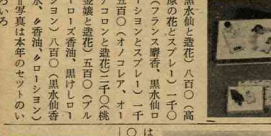 黒水仙と造花）八百〇（高
原の花とスプレー）一千〇
（フランス麝香、黒水仙ロ
ーションとスプレー）一千
五百〇（オノコレア、オー
デコロンと造花）二千〇桃
金嬢と造花）五百〇（ブル
ーローズ香油、黒けしロー
ション）八百〇（黒水仙香
水、〃香油、〃ローション）
写真は本年のセットのい
ろいろ
〇は